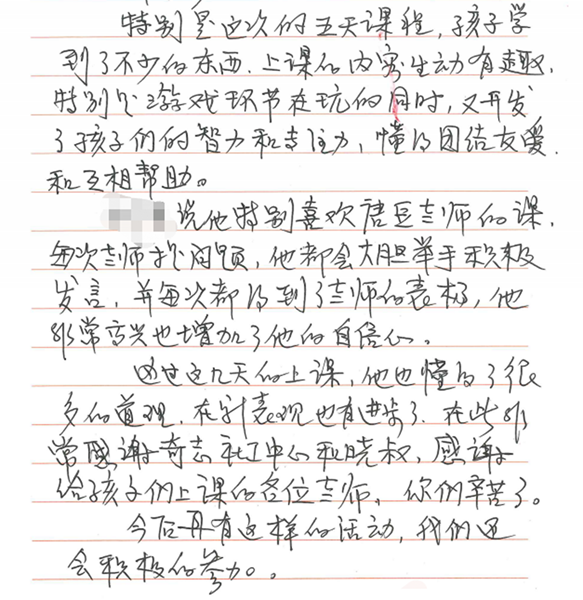 特别是这次的五天课程，孩子学
到了不少的东西，上课的内容生动有趣，
特别是游戏环节在玩的同时，又开发
了孩子们的智力和专注力，懂的团结友爱
和互相帮助。
说他特别喜欢唐豆老师的课，
每次老师提问题，他都会大胆举手积极
发言，并每次都得到了老师的表扬，他
非常高兴也增加了他的自信心。
通过这几天的上课，他也懂的了很
多的道理，在家表现也有进步了，在此非
常感谢奇志社工中心和晓叔，感谢
给孩子们上课的各位老师，你们辛苦了。
今后再有这样的活动，我们还
会积极的参加。